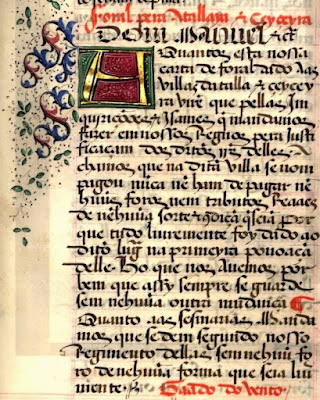 foral pera Atallaia & Ceyceyra
Dom Manuel &c̃ A
Quantos esta nossa
carta de foral dado aas
villas datalla & ceycey
ra virẽ que pellas Im
quiricoões & Isames q̃ mandamos
fazer em nossos Regnos pera Justi
ficaçam dos ditos
chamos que na dita villa se nom
pagou nũca nẽ ham de pagar nẽ
hũus foros nem tributos Reaaes
de nehũua sorte & condiçã q̃ seia por
que tudo liuremente foy dado ao
dito lugar na primeyra pouoaçã
delle. Ho que nos Avemos por
bem que assy sempre se guarde
sem nehũua outra mudança
Quanto aas sesmarias Manda
mos que se dem seguindo nosso
Regimento dellas sem nehũu fo
ro de nehũua forma que seia lau
mente. Gaado do vento.